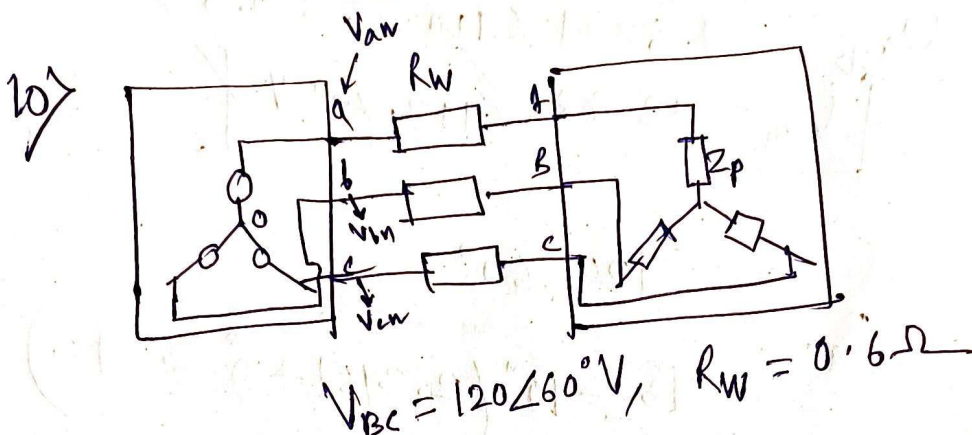 10>
Van
Rw
a
A
b
B
Zp
o
Vbn
c
C
Vcn
VBC = 120∠60°V, Rw = 0.6Ω